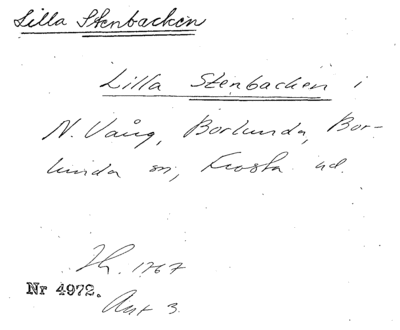 Lilla Stenbacken
Lilla Stenbacken i
N. Vång, Borlunda, Bor-
lunda sn, Frosta hd.
Th. 1767
Nr 4972.
Akt 3.